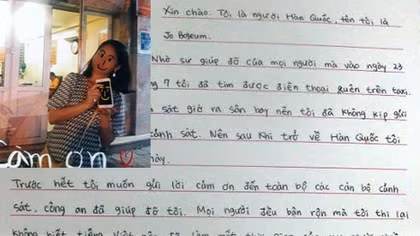 Xin chào. Tôi là người Hàn Quốc, tên tôi là
Jo Bogeum.
Nhờ sự giúp đỡ của mọi người mà vào ngày 23
7 tôi đã tìm được điện thoại quên trên taxi.
sát giờ ra sân bay nên tôi đã không kịp gửi
cảnh sát. Nên sau khi trở về Hàn Quốc tôi
này.
Cảm ơn
Trước hết tôi muốn gửi lời cảm ơn đến toàn bộ các cán bộ cảnh
sát, công an đã giúp đỡ tôi. Mọi người đều bận rộn mà tôi thì lại
không biết tiếng Việt nên